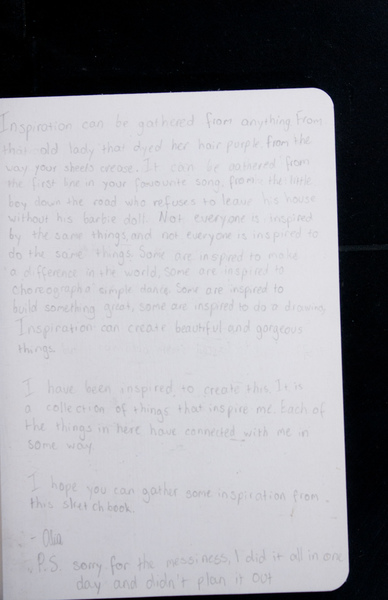 Inspiration can be gathered from anything. From
that old lady that dyed her hair purple. From the
way your sheets crease. It can be gathered from
the first line in your favourite song, from the little
boy down the road who refuses to leave his house
without his barbie doll. Not everyone is inspired
by the same things, and not everyone is inspired to
do the same things. Some are inspired to make
a difference in the world, some are inspired to
choreograph a simple dance. Some are inspired to
build something great, some are inspired to do a drawing.
Inspiration can create beautiful and gorgeous
things.
I have been inspired to create this. It is
a collection of things that inspire me. Each of
the things in here have connected with me in
some way.
I hope you can gather some inspiration from
this sketchbook.
P.S. sorry for the messiness, I did it all in one
day and didn't plan it out